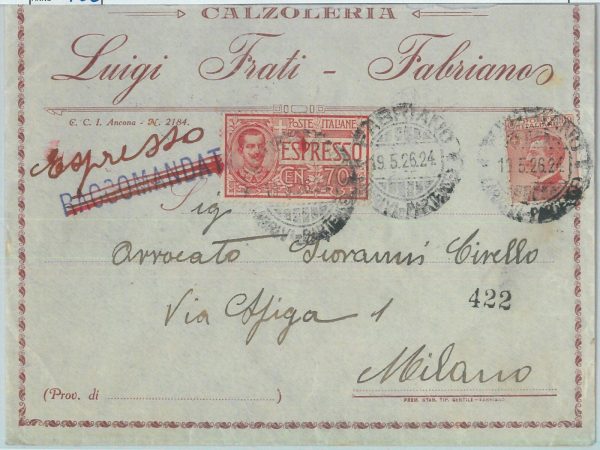 CALZOLERIA
Luigi Frati - Fabriano
C. C. I. Ancona - N. 2184.
Espresso
RACCOMANDAT
POSTE ITALIANE
ESPRESSO
CEN. 70
FABRIANO
19.5.26.24
19.5.26.24
Sig
Avvocato Giovanni Cirello
422
Via Afiga 1
Milano
(Prov. di )
PREM. STAB. TIP. GENTILE - FABRIANO